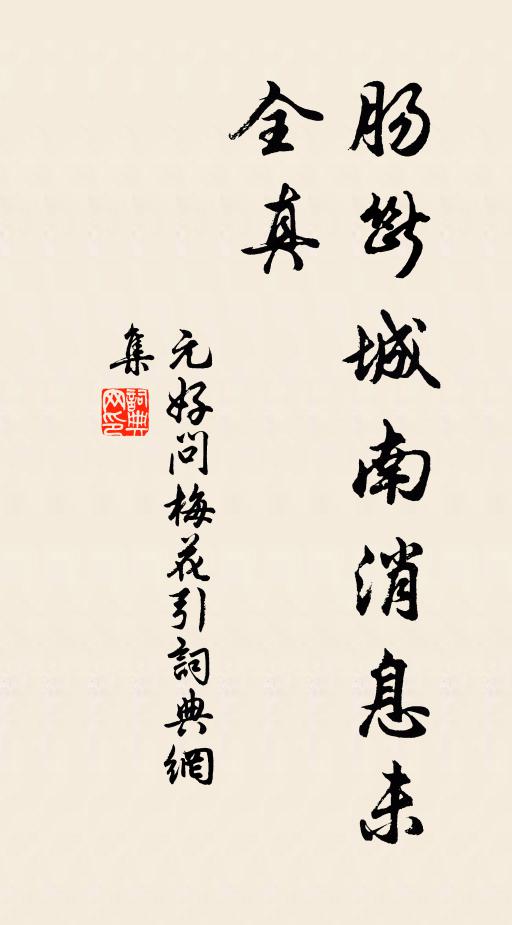 肠斷城南消息未
全真
元好问梅花引詞典網
集
詞典
网印